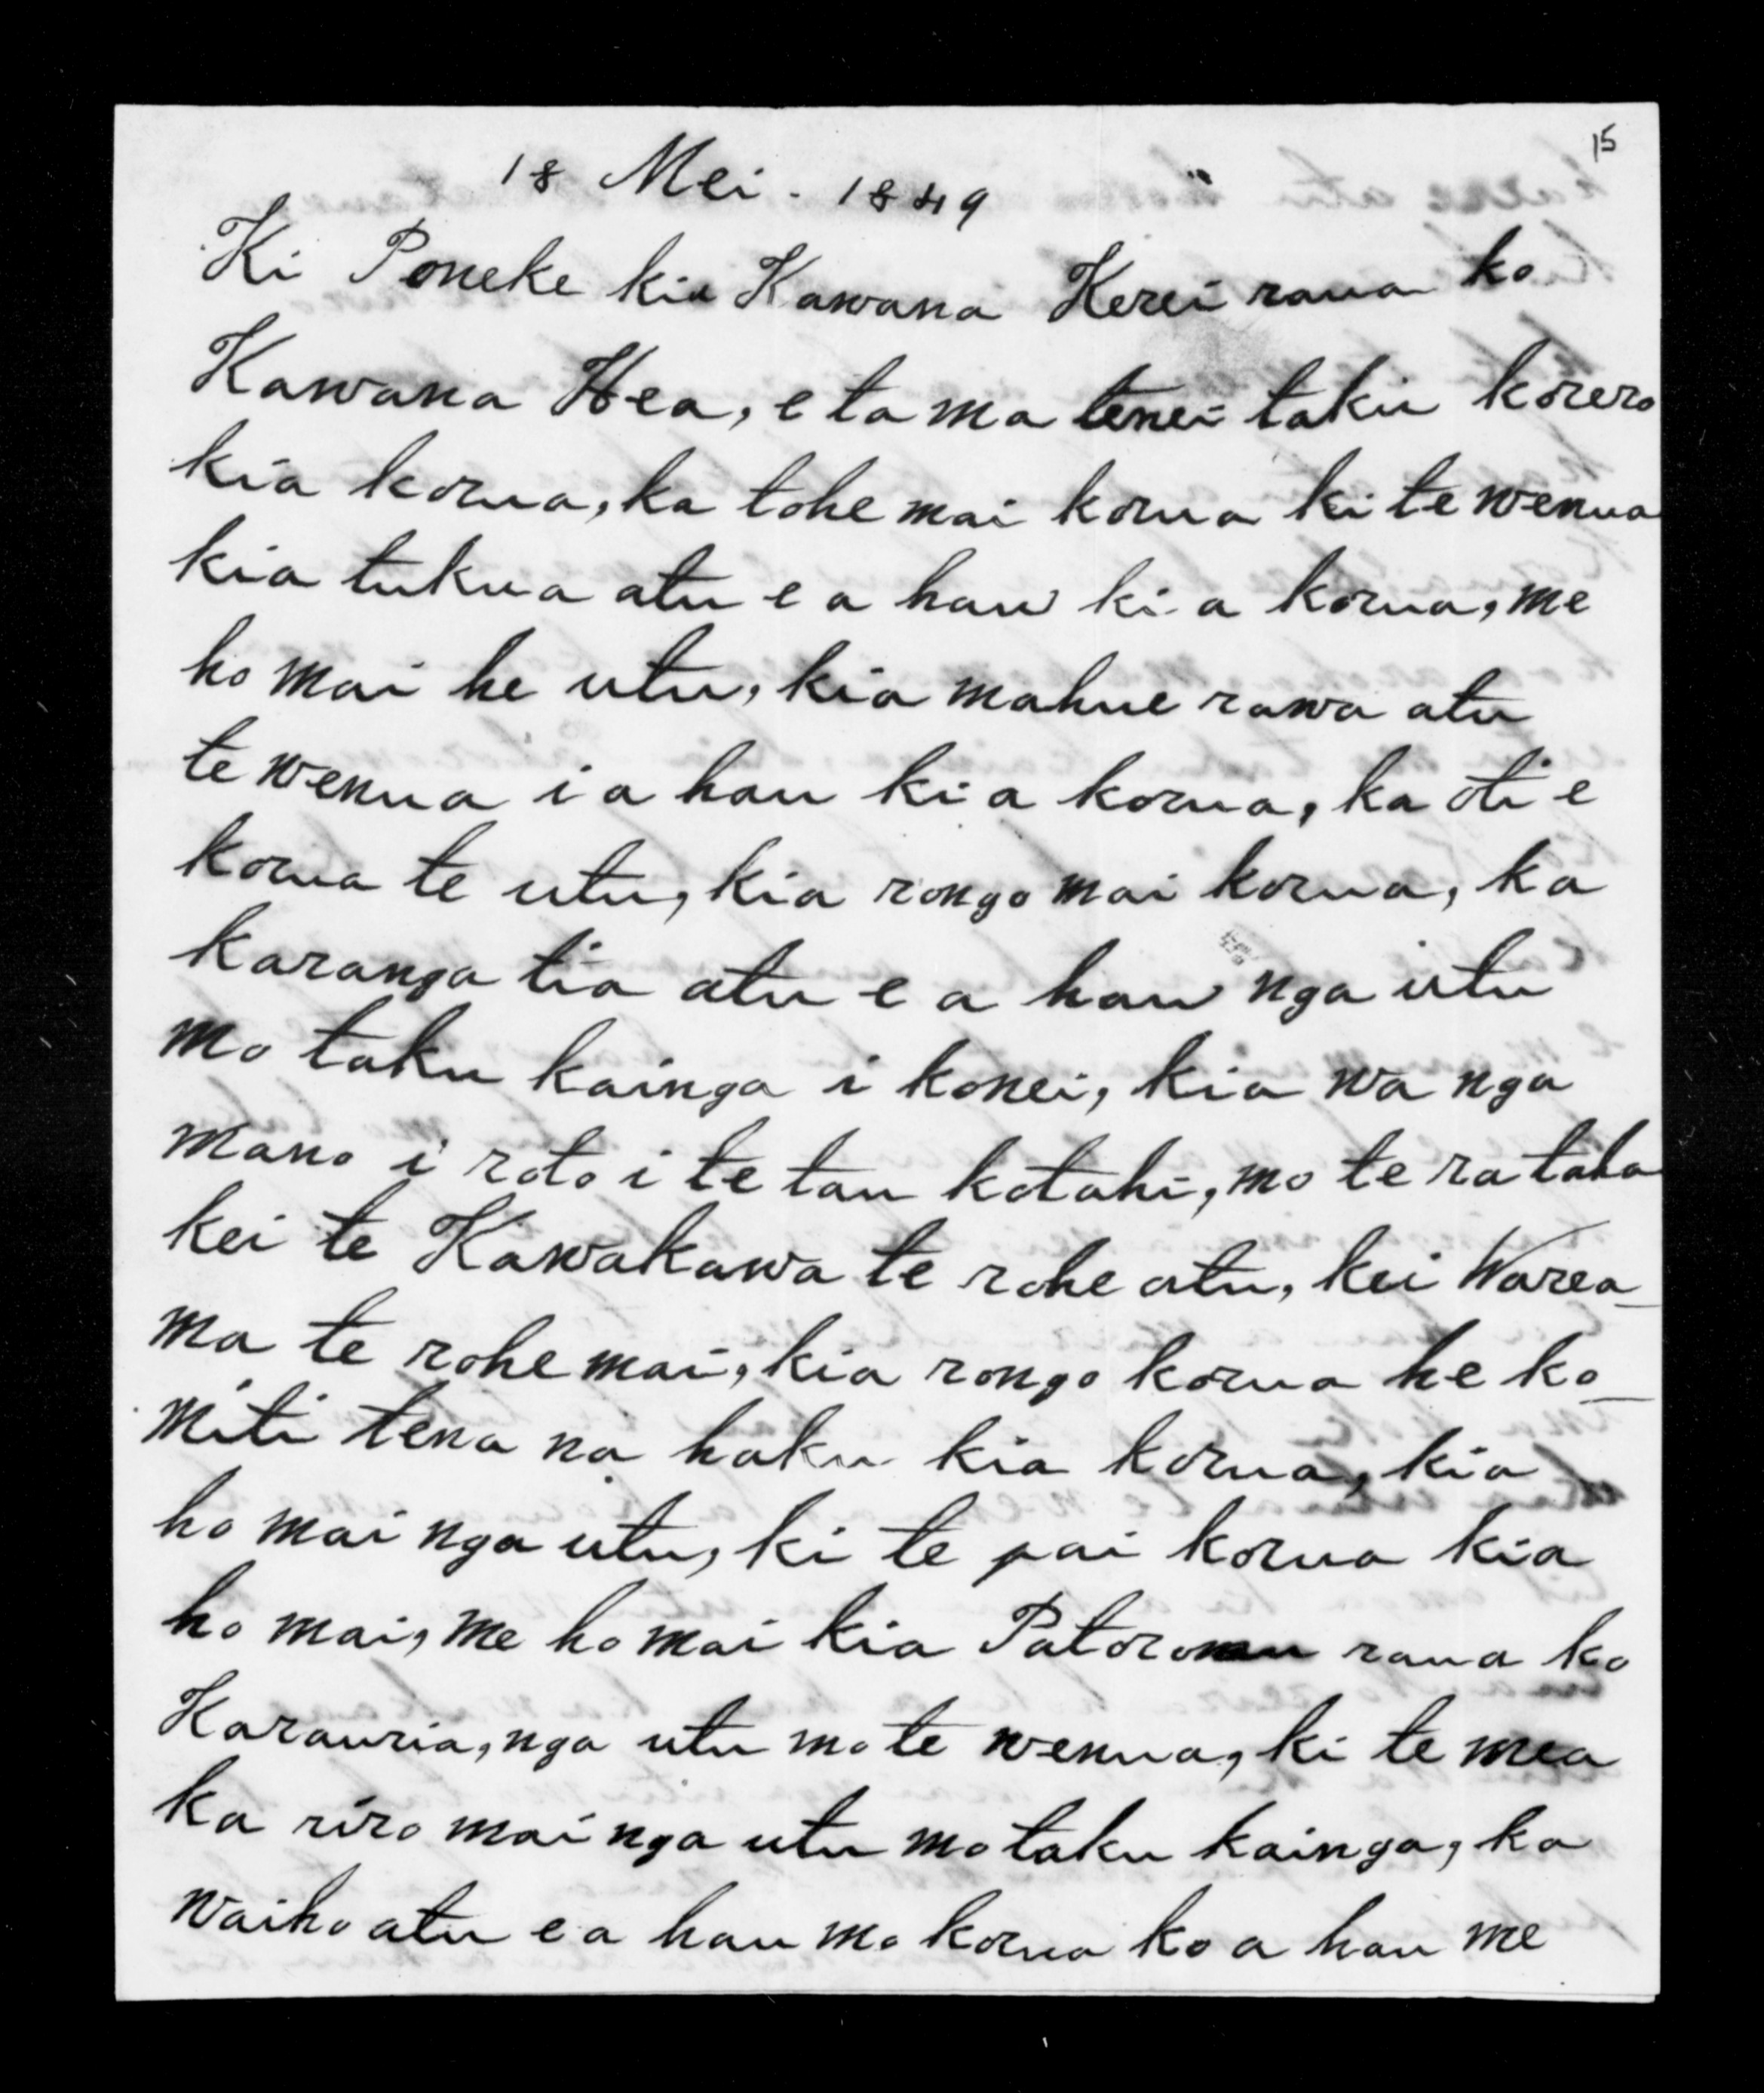 15
18 Mei. 1849
Ki Poneke kia Kawana Kerei raua ko
Kawana Hea, e ta ma tenei taku korero
kia korua, ka tohe mai korua ki te wenua
kia tukua atu e a hau ki a korua, me
ho mai he utu, kia mahue rawa atu
te wenua i a hau ki a korua, ka oti e
korua te utu, kia rongo mai korua, ka
karanga tia atu e a hau nga utu
mo taku kainga i konei, kia wa nga
mano i roto i te tau kotahi, mo te ra taha
kei te Kawakawa te rohe atu, kei Warea_
ma te rohe mai, kia rongo korua he ko_
miti tena na haku kia korua, kia
ho mai nga utu, ki te pai korua kia
ho mai, me ho mai kia Patoromu raua ko
Karauria, nga utu mo te wenua, ki te mea
ka riro mai nga utu mo taku kainga, ka
waiho atu e a hau mo korua ko a hau me